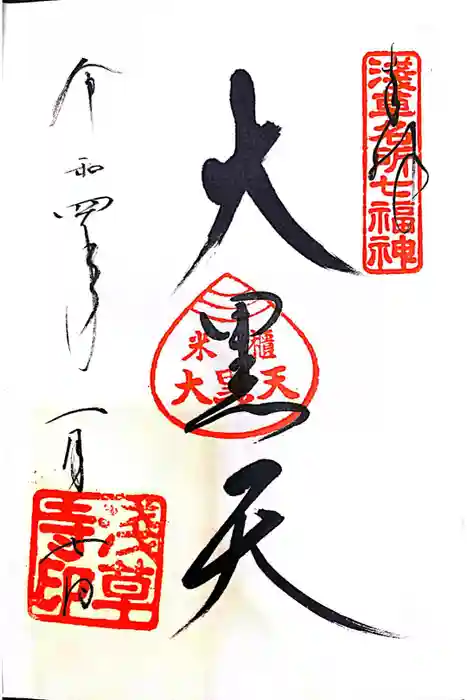 奉拝
淺草名所七福神
大黒天
米櫃
大黒天
令和四年一月
淺草寺印